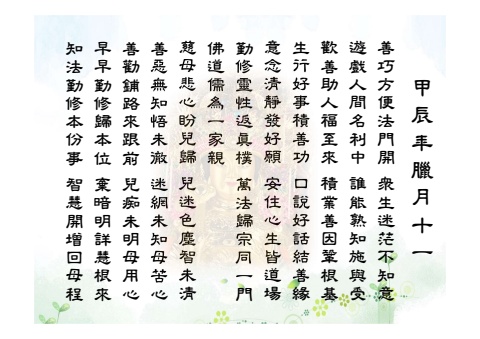 甲辰年臘月十一
善巧方便法門開　眾生迷茫不知意
遊戲人間名利中　誰能熟知施與受
歡善助人福至來　積業善因鞏根基
生行好事積善功　口說好話結善緣
意念清靜發好願　安住心生皆道場
勤修靈性返真樸　萬法歸宗同一門
佛道儒為一家親
慈母悲心盼兒歸　兒迷色塵智未清
善惡無知悟未澈　迷網未知母苦心
善勸鋪路來跟前　兒痴未明母用心
早早勤修歸本位　棄暗明詳慧根來
知法勤修本份事　智慧開增回母程